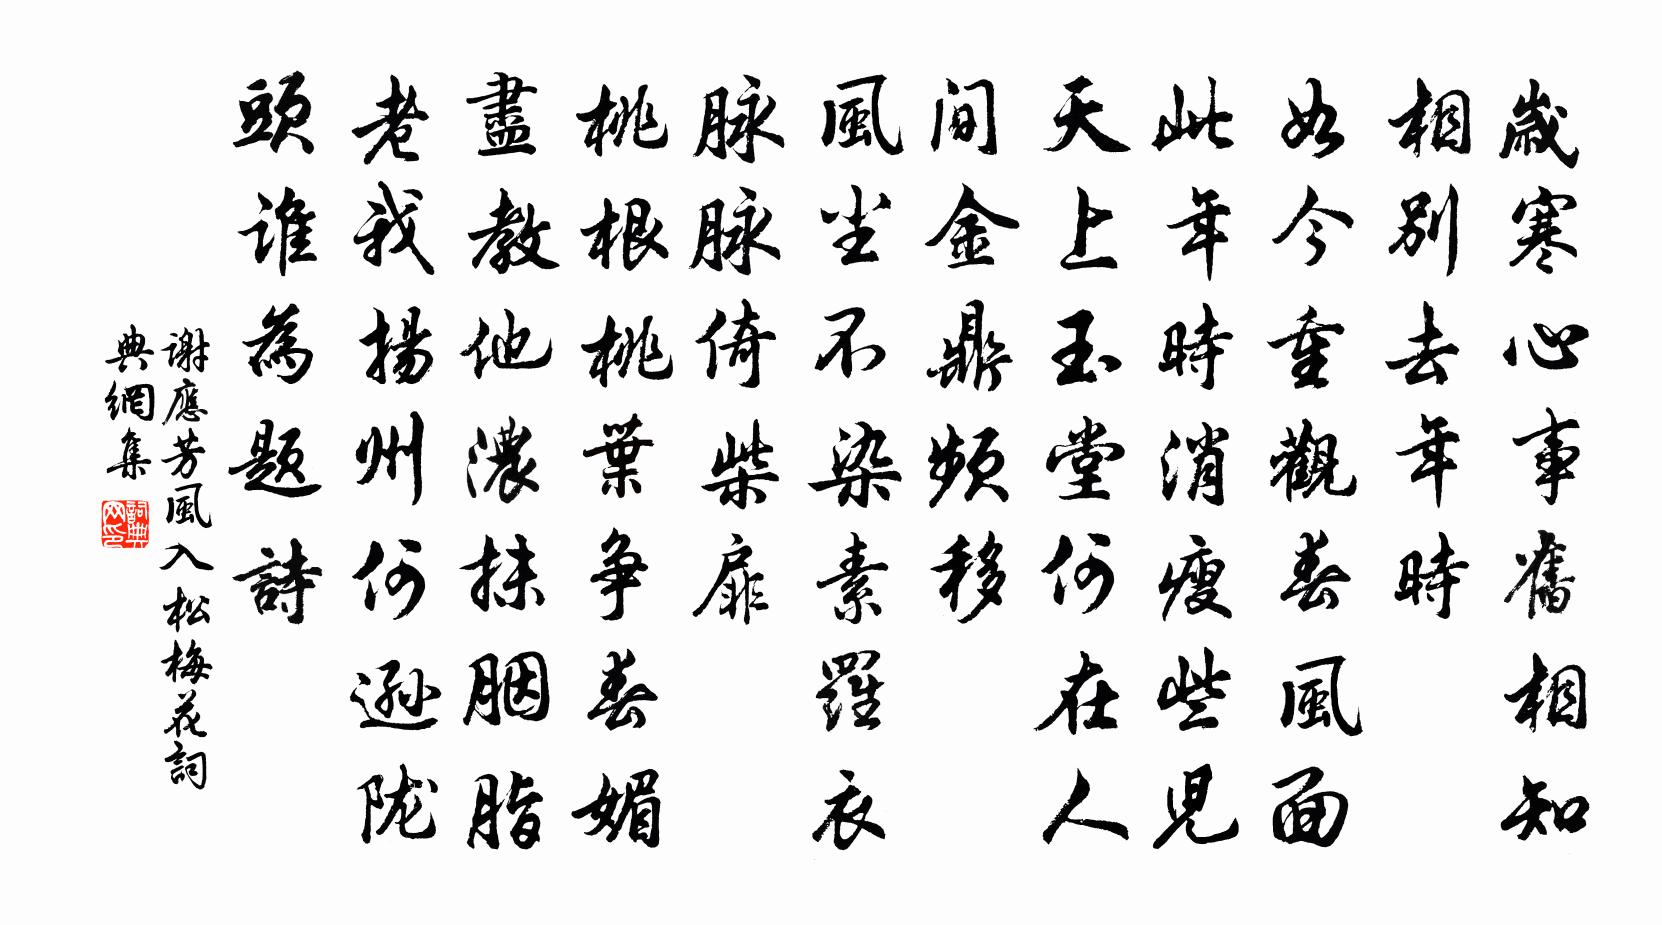 歲寒心事舊相知
相別去年時
如今重觀春風面
此年時消瘦些兒
天上玉堂何在人
間金鼎頻移
風尘不染素羅衣
脉脉倚柴扉
桃根桃葉爭春媚
盡教他濃抹胭脂
老我揚州何遜陇
頭谁為题詩
謝應芳風入松梅花詞
典網集
詞典网印